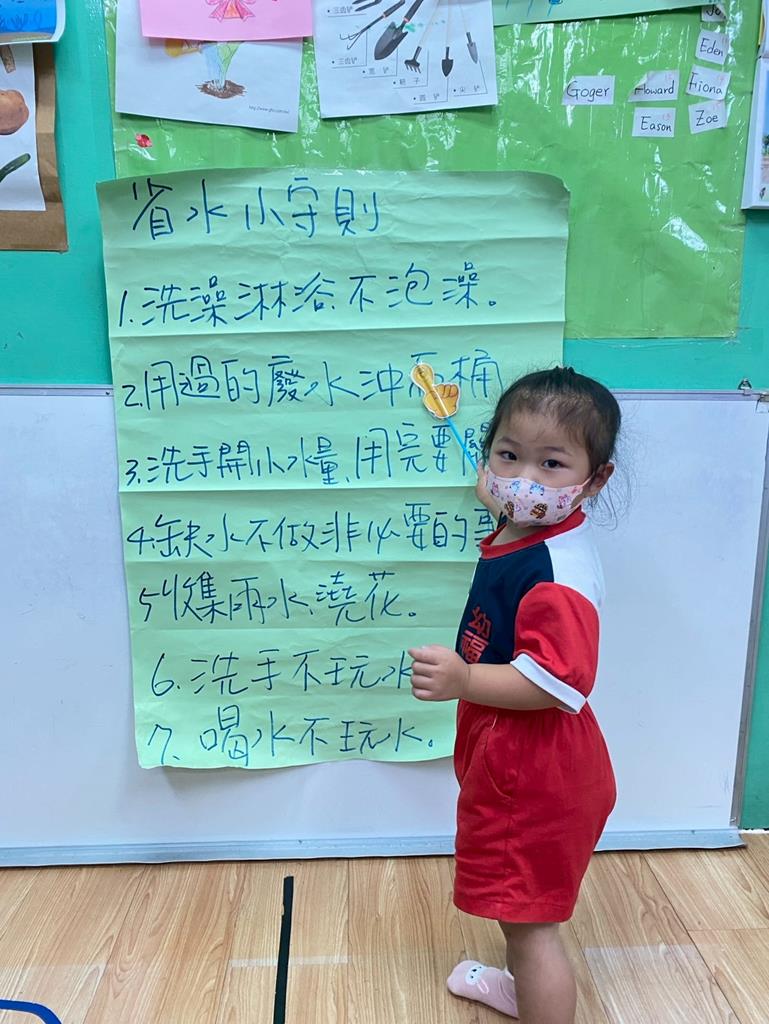 三齿铲
三齿铲
宽铲
耙子
尖铲
圆铲
Jo
Eden
Goger
Howard
Fiona
Eason
Zoe
省水小守則
1.洗澡淋浴不泡澡。
2.用過的廢水沖馬桶
3.洗手開小水量,用完要關
4.缺水不做非必要的事
5收集雨水澆花。
6.洗手不玩水
7.喝水不玩水。
幼
福